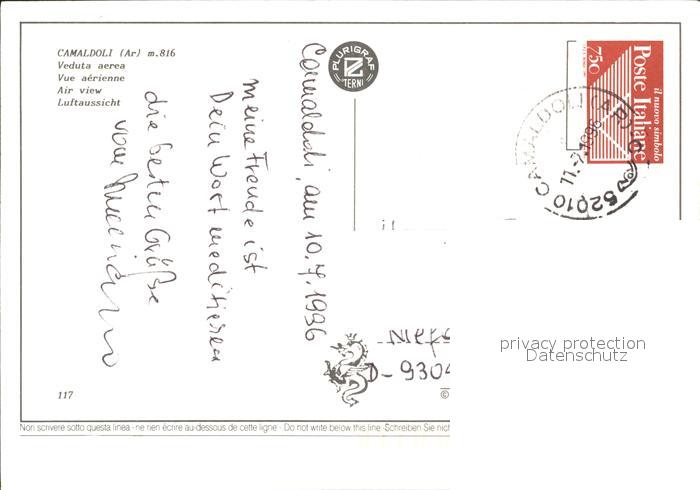 CAMALDOLI (Ar) m.816
Veduta aerea
Vue aérienne
Air view
Luftaussicht
PLURIGRAF
TERNI
Camaldoli, am 10.7.1996
meine Freude ist
Dein Wort meditieren
die besten Grüße
von
750
Poste Italiane
il nuovo simbolo
52010 CAMALDOLI (AR)
11.7.1996
D-9304
privacy protection
Datenschutz
117
©
Non scrivere sotto questa linea - ne rien écrire au-dessous de cette ligne - Do not write below this line - Schreiben Sie nich